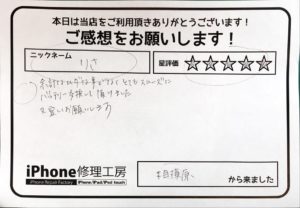 本日は当店をご利用頂きありがとうございます！
ご感想をお願いします！
ニックネーム りさ 星評価 ☆☆☆☆☆
とてもスムーズに
バッテリー交換して頂けました
又宜しくお願いします
iPhone修理工房
iPhone Repair Factory iPhone/iPad/iPod touch
相模原 から来ました